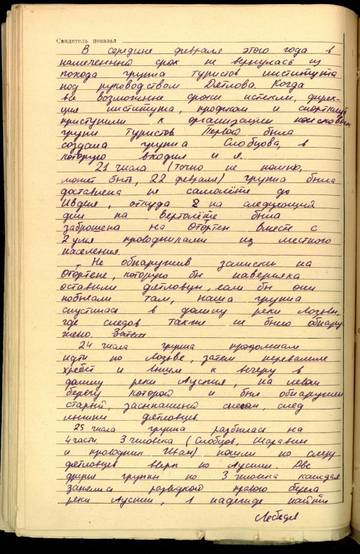 Свидетель показал
В середине февраля этого года в
намеченный срок не вернулась из
похода группа туристов института
под руководством Дятлова. Когда
все возможные сроки истекли, дирек-
ция института, профком и спортклуб
приступили к организации поисковых
групп туристов Первой была
создана группа Слобцова, в
которую входил и я.
21 числа (точно не помню,
может быть, 22 февраля) группа была
доставлена на самолёте до
Ивделя, откуда 2 на следующий
день на вертолёте была
заброшена на Отортен вместе с
2 умя проводниками из местного
населения.
Не обнаружив записки на
Отортене, которую бы наверняка
оставили дятловцы, если бы они
побывали там, наша группа
спустилась в долину реки Лозьвы
где следов также не было обнару
жено. Затем
24 числа группа продолжала
идти по Лозьве, затем перевалила
хребет и вышла к вечеру в
долину реки Ауспия, на левом
берегу которой и был обнаружен
старый, засыпанный снегом, след
лыжни дятловцев
25 числа группа разбилась на
4 части 3 человека (Слобцов, Шаравин
и проводник Иван) пошли по следу
дятловцев вверх по Ауспии. Две
другие группы по 3 человека каждая
занялись разведкой правого берега
реки Ауспии, в надежде найти
Лебедев